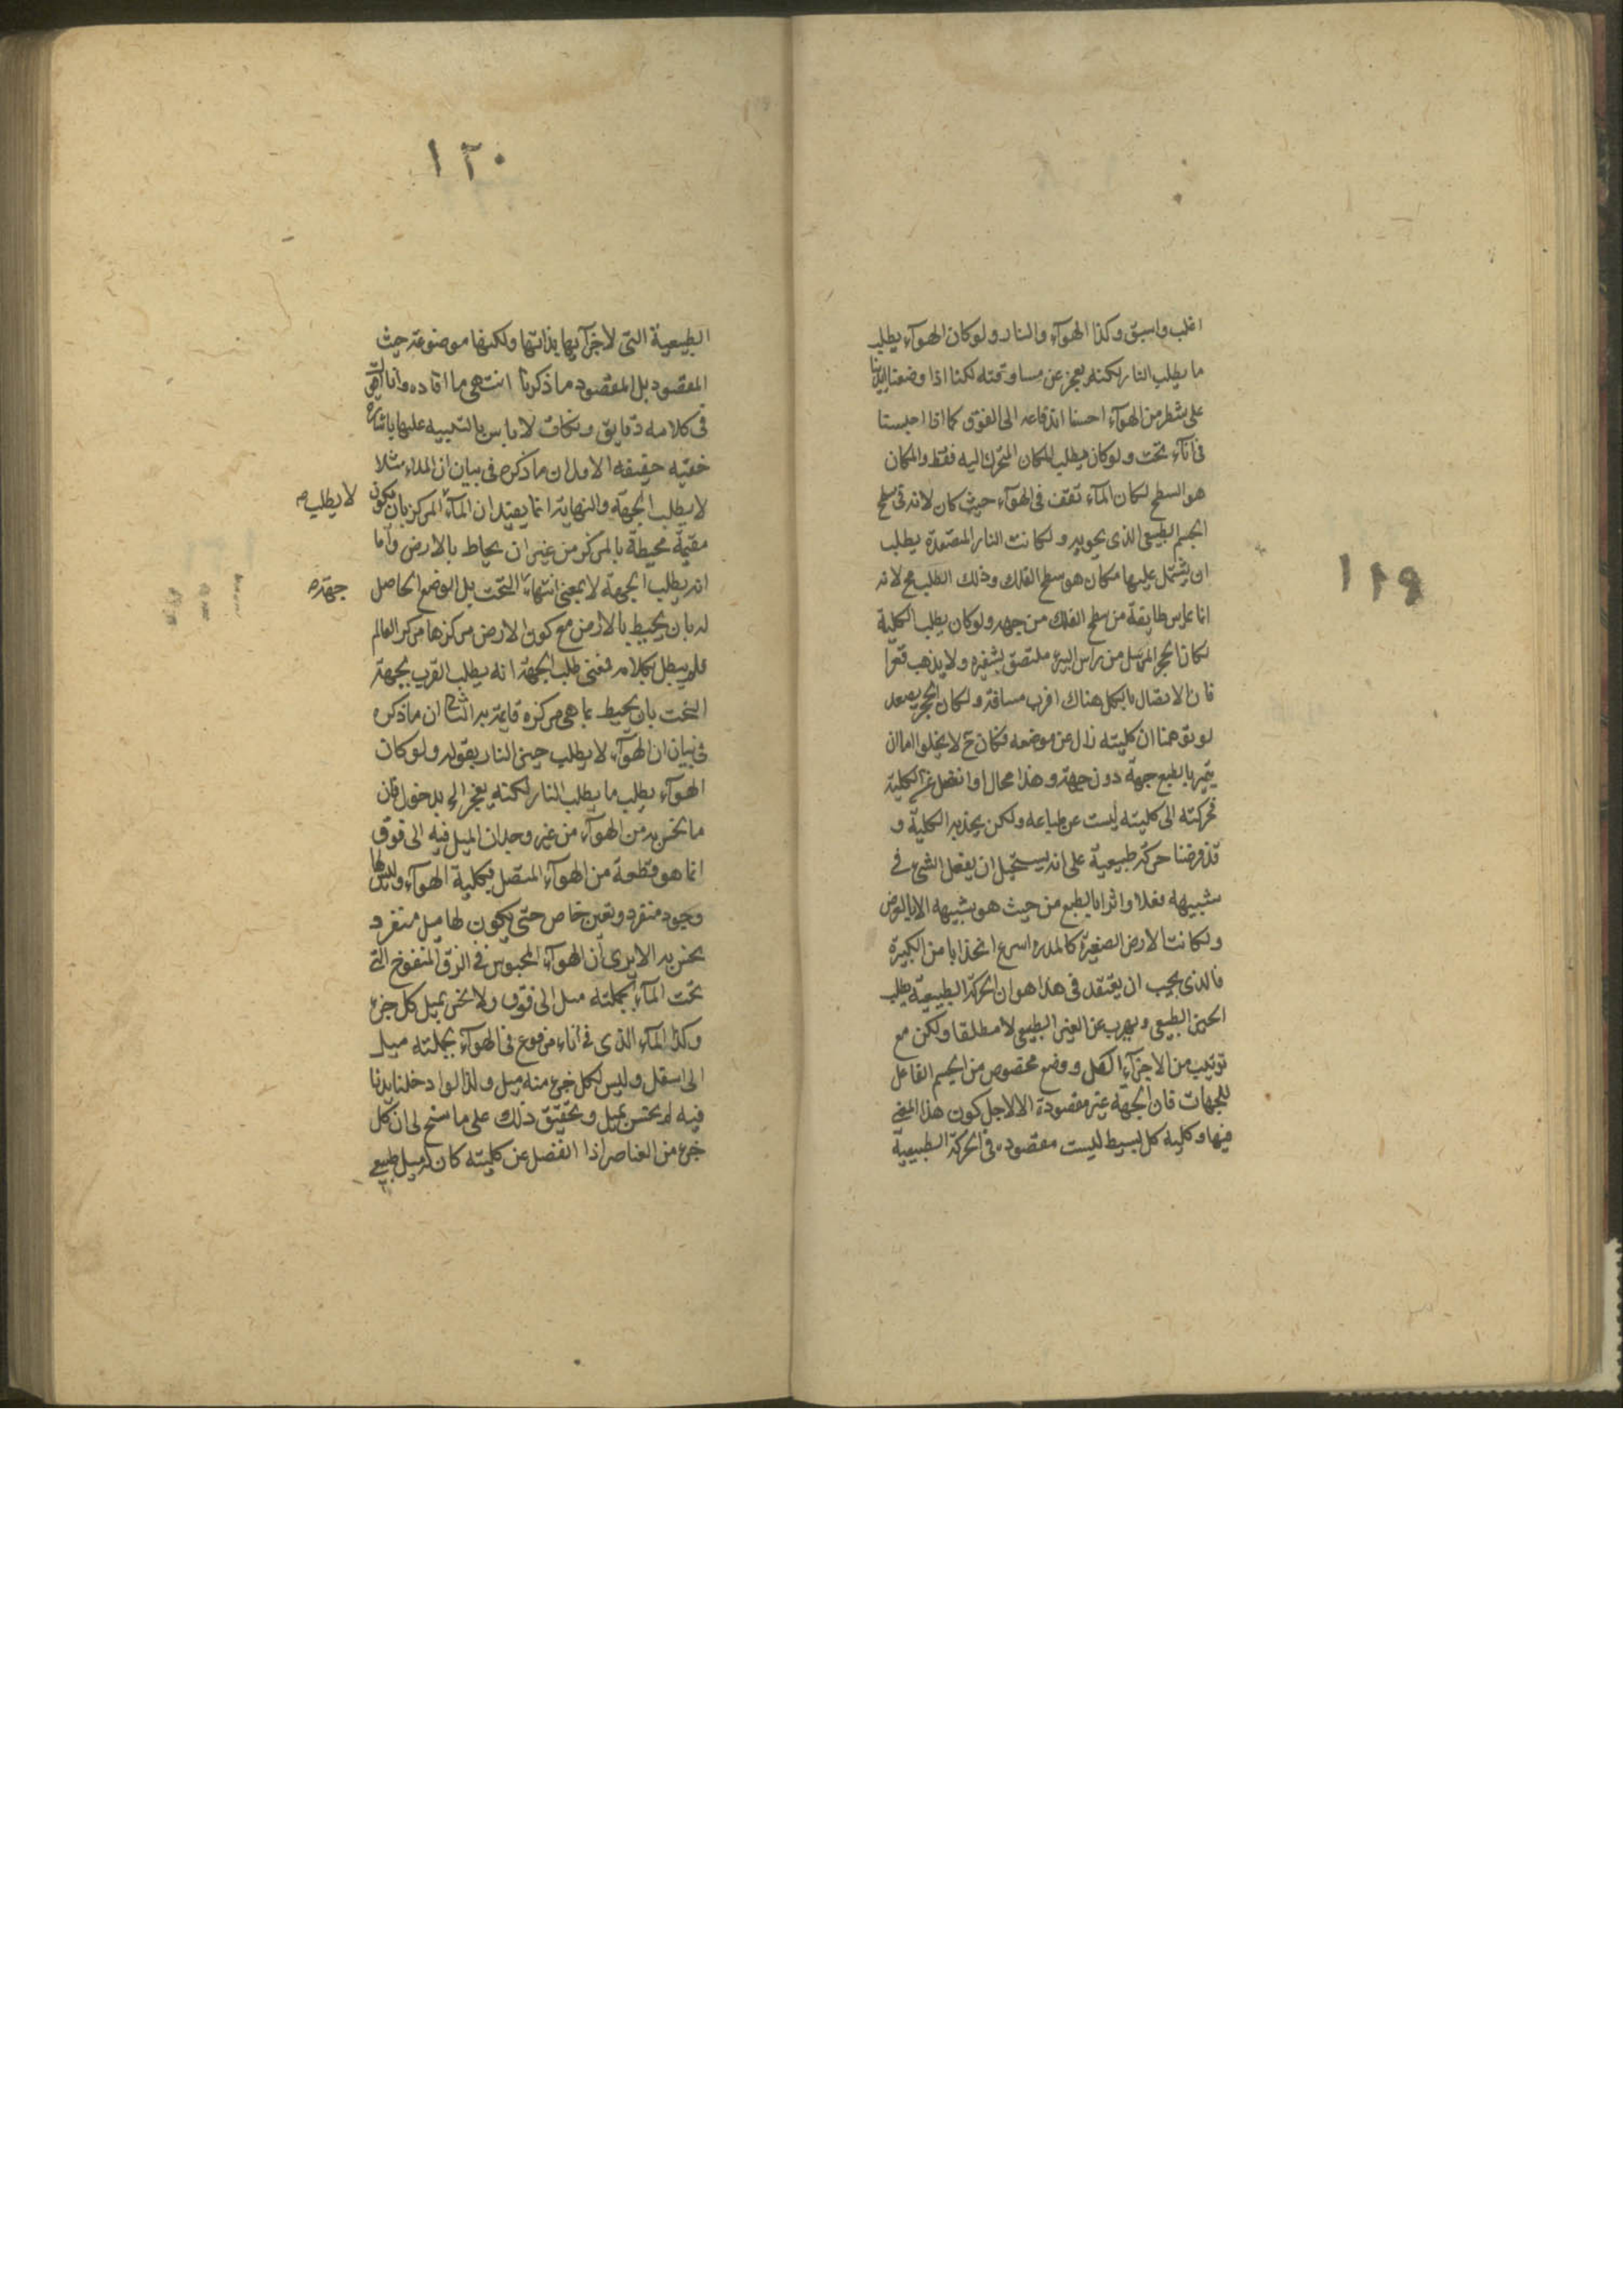 ١١٩
اغلب واسبق وكذا الهوآء والنار ولو كان الهوآء يطلب
ما يطلب النار لكنه يعجز عن مساوقته لكنا اذا وضعنا ايدينا
على شطر من الهوآء احسنا اندفاعه الى الفوق كما اذا احبسنا
فى انآء تحت ولو كان يطلب المكان المتحرك اليه فقط والمكان
هو السطح لكان المآء تقف فى الهوآء حيث كان لانه فى سطح
الجسم الطبيعى الذى يحويه ولكانت النار المتصعدة يطلب
ان يشتمل عليها مكان هو سطح الفلك وذلك الطلب مح لانه
انما يماس طايفة من سطح الفلك من جهه ولو كان يطلب الكلية
لكان الحجر المرسل من راس البير ملتصق بشفيره ولا يذهب قعرا
فان الاتصال بالكل هناك اقرب مسافة ولكان الحجر يصعد
لو توهمنا ان كليته زال عن موضعه فكان ح لا يخلوا اما ان
يتميز بالطبع جهة دون جهة وهذا محال او انفعل عن الكلية
فحركته الى كليته ليست عن طباعه ولكن يجذبه الكلية و
قد فرضنا حركة طبيعية على انه يستحيل ان يفعل الشئ فى
شبيهه فعلا واثرا بالطبع من حيث هو شبيهه الا بالعرض
ولكانت الارض الصغيرة كالمدره اسرع انجذابا من الكبيرة
فالذى يجب ان يعتقد فى هذا هو ان الحركة الطبيعية يطلب
الحيز الطبيعى ويهرب عن الغير الطبيعى لا مطلقا ولكن مع
ترتيب من الاجزآء الكل ووضع مخصوص من الجسم الفاعل
للجهات فان الجهة غير مقصودة الا لاجل كون هذا المعنى
فيها وكلية كل بسيط ليست مقصوده فى الحركة الطبيعية
١٢٠
الطبيعية التى لاجزآيها بذاتها ولكنها موضوعة حيث
المقصود بل المقصود ما ذكرنا انتهى ما افاده وانا
فى كلامه دقايق ونكات لا باس بالتنبيه عليها باشارة
خفيه حقيقه الاول ان ما ذكره فى بيان ان المآء مثلا
لا يطلب الجهة والنهاية انما يفيد ان المآء المركز بان يكون
لا يطلب صح
مقيمة محيطة بالمركز من غير ان يحاط بالارض واما
انه يطلب الجهة لا بمعنى انتهاء التحت بل الوضع الحاصل
جهة صح
له بان يحيط بالارض مع كون الارض مركزها مركز العالم
فلم يبطل بكلامه فمعنى طلب الجهة انه يطلب القرب بجهة
التحت بان يحيط بما هى مركزه قايمة به الثانى ان ما ذكره
فى بيان ان الهوآء لا يطلب حيز النار بقوله ولو كان
الهوآء يطلب ما يطلب النار لكنه يعجز الى مدخول فان
ما نحس به من الهوآء من غير وجدان الميل فيه الى فوق
انما هو قطعة من الهوآء المتصل بكلية الهوآء وليس لها
وجود منفرد وتعين خاص حتى يكون لها ميل منفرد
يحس به الا يرى ان الهوآء المحبوس فى الزق المنفوخ التى
تحت المآء بجملته ميل الى فوق ولا نحس بميل كل جزء
وكذا المآء الذى فى انآء مرفوع فى الهوآء بجملته ميل
الى اسفل وليس لكل جزء منه ميل ولذا لو ادخلنا يدنا
فيه لم نحس بميل وتحقيق ذلك على ما سنح لى ان كل
جزء من العناصر اذا انفصل عن كليته كان له ميل طبيعى